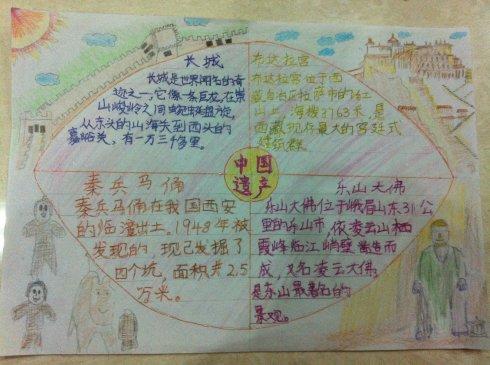 长城
长城是世界闻名的奇
迹之一,它像一条巨龙,在崇
山峻岭之间蜿蜒盘旋,
从东头的山海关到西头的
嘉峪关,有一万三千多里。
布达拉宫
布达拉宫位于西
藏自治区拉萨市的红
山上,海拔3763米,是
西藏现存最大的宫廷式
建筑群
中国
遗产
秦兵马俑
秦兵马俑在我国西安
的临潼出土,1948年被
发现的,现已发掘了
四个坑,面积共2.5
万米。
乐山大佛
乐山大佛位于峨眉山东31公
里的乐山市,依凌云山栖
霞峰临江峭壁凿造而
成,又名凌云大佛,
是乐山最著名的
景观。